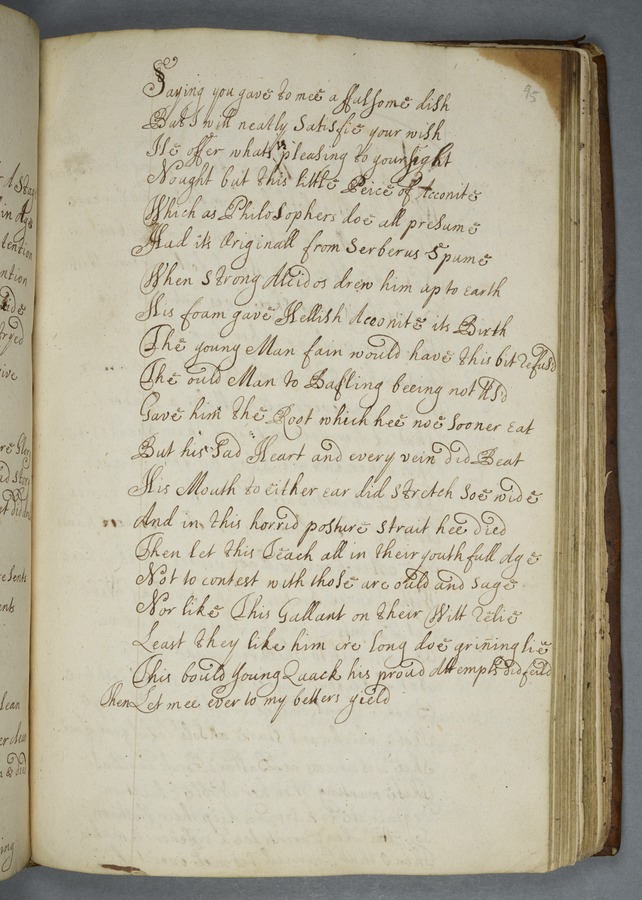 95
Saying you gave to mee a ffulsome dish
But I will neatly Satisfie your wish
Ile offer whats pleasing to your sight
Nought but this little Peice of Acconite
Which as Philosophers doe all presume
Had its Originall from Serberus Spume
When Strong Alcidos drew him up to Earth
His foam gave Hellish Acconite its Birth
The young Man fain would have this bit refus'd
The ould Man to Bafling beeing not Us'd
Gave him the Root which hee noe sooner eat
But his Sad Heart and every vein did Beat
His Mouth to either ear did stretch soe wide
And in this horrid posture strait hee died
Then let this Teach all in their youthfull Age
Not to contest with those are ould and sage
Nor like This Gallant on their Witt relie
Least they like him ere long doe grining lie
This bould Young Quack his proud Attempts did feild
Then Let mee ever to my betters yield